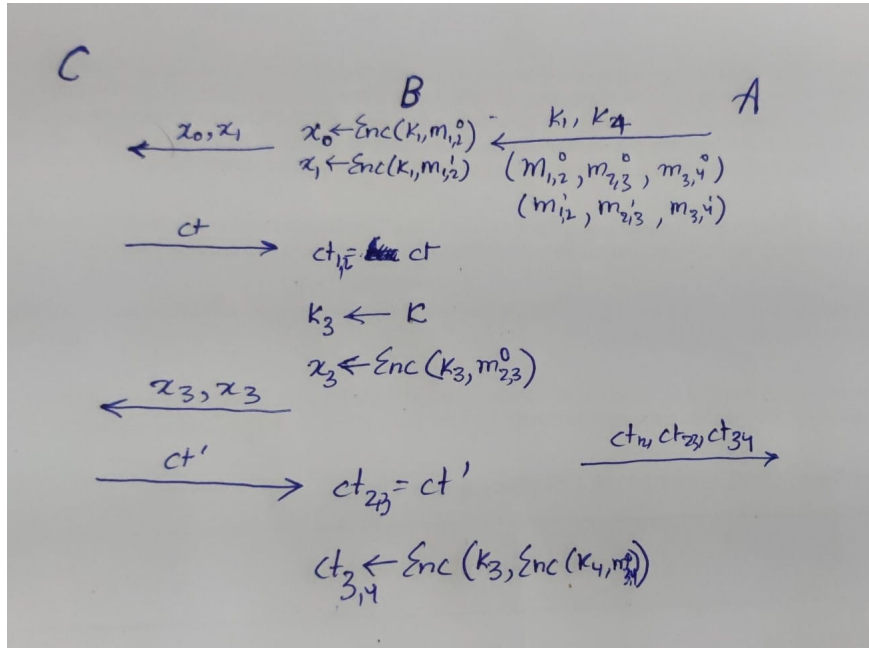 C B A
x₀, x₁
x₀ ← Enc(K₁, m⁰₁,₂)
K₁, K₄
x₁ ← Enc(K₁, m¹₁,₂)
(m⁰₁,₂, m⁰₂,₃, m⁰₃,₄)
(m¹₁,₂, m¹₂,₃, m¹₃,₄)
ct
ct₁,₂ = ct
K₃ ← K
x₃ ← Enc(K₃, m⁰₂,₃)
x₃, x₃
ct₁₂, ct₂₃, ct₃₄
ct'
ct₂,₃ = ct'
ct₃,₄ ← Enc(K₃, Enc(K₄, m⁰₃,₄))